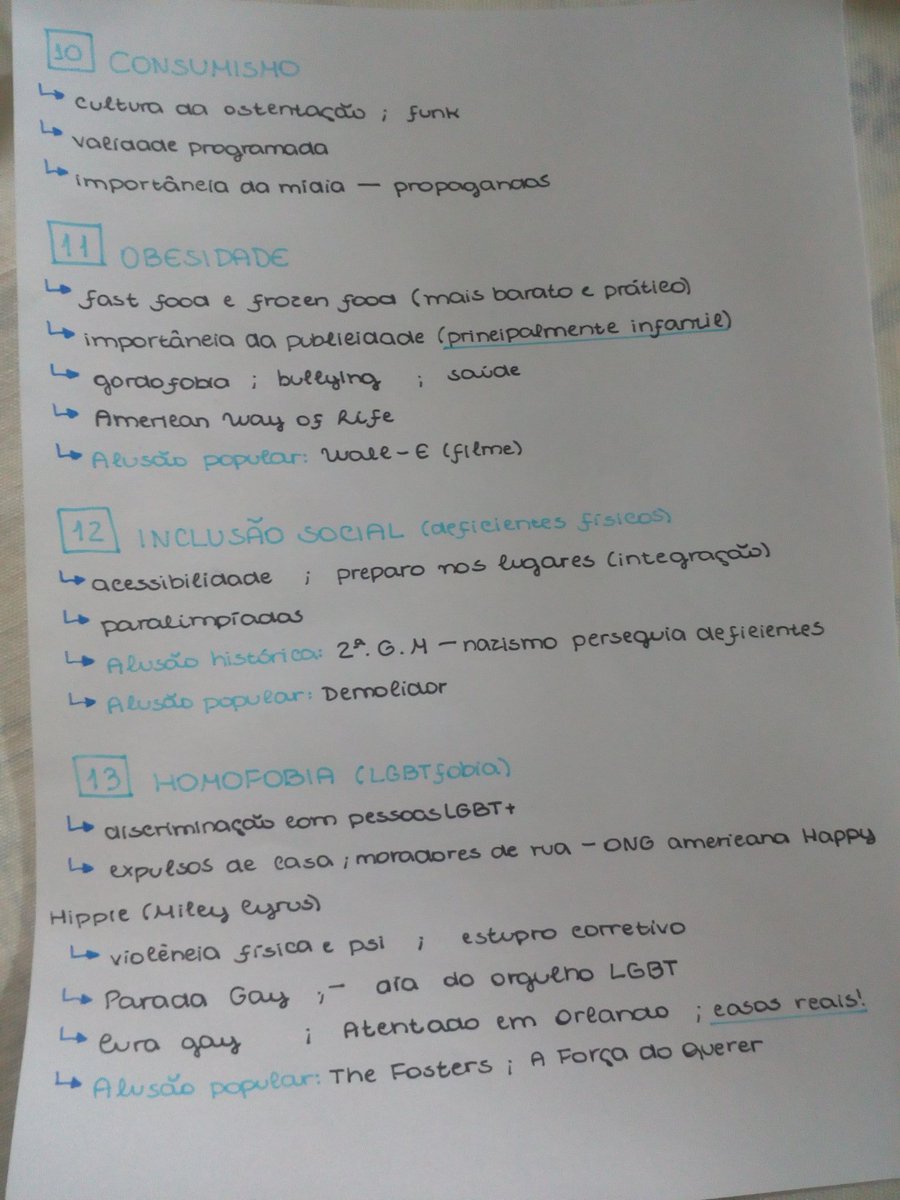 10 CONSUMISMO
↳ cultura da ostentação ; funk
↳ validade programada
↳ importância da mídia — propagandas
11 OBESIDADE
↳ fast food e frozen food (mais barato e prático)
↳ importância da publicidade (principalmente infantil)
↳ gordofobia ; bullying ; saúde
↳ American Way of Life
↳ Alusão popular: Wall-E (filme)
12 INCLUSÃO SOCIAL (deficientes físicos)
↳ acessibilidade ; preparo nos lugares (integração)
↳ paralimpíadas
↳ Alusão histórica: 2ª. G.M — nazismo perseguia deficientes
↳ Alusão popular: Demolidor
13 HOMOFOBIA (LGBTfobia)
↳ discriminação com pessoas LGBT+
↳ expulsos de casa ; moradores de rua — ONG americana Happy
Hippie (Miley Cyrus)
↳ violência física e psi ; estupro corretivo
↳ Parada Gay ;— dia do orgulho LGBT
↳ cura gay ; Atentado em Orlando ; casos reais!
↳ Alusão popular: The Fosters ; A Força do Querer